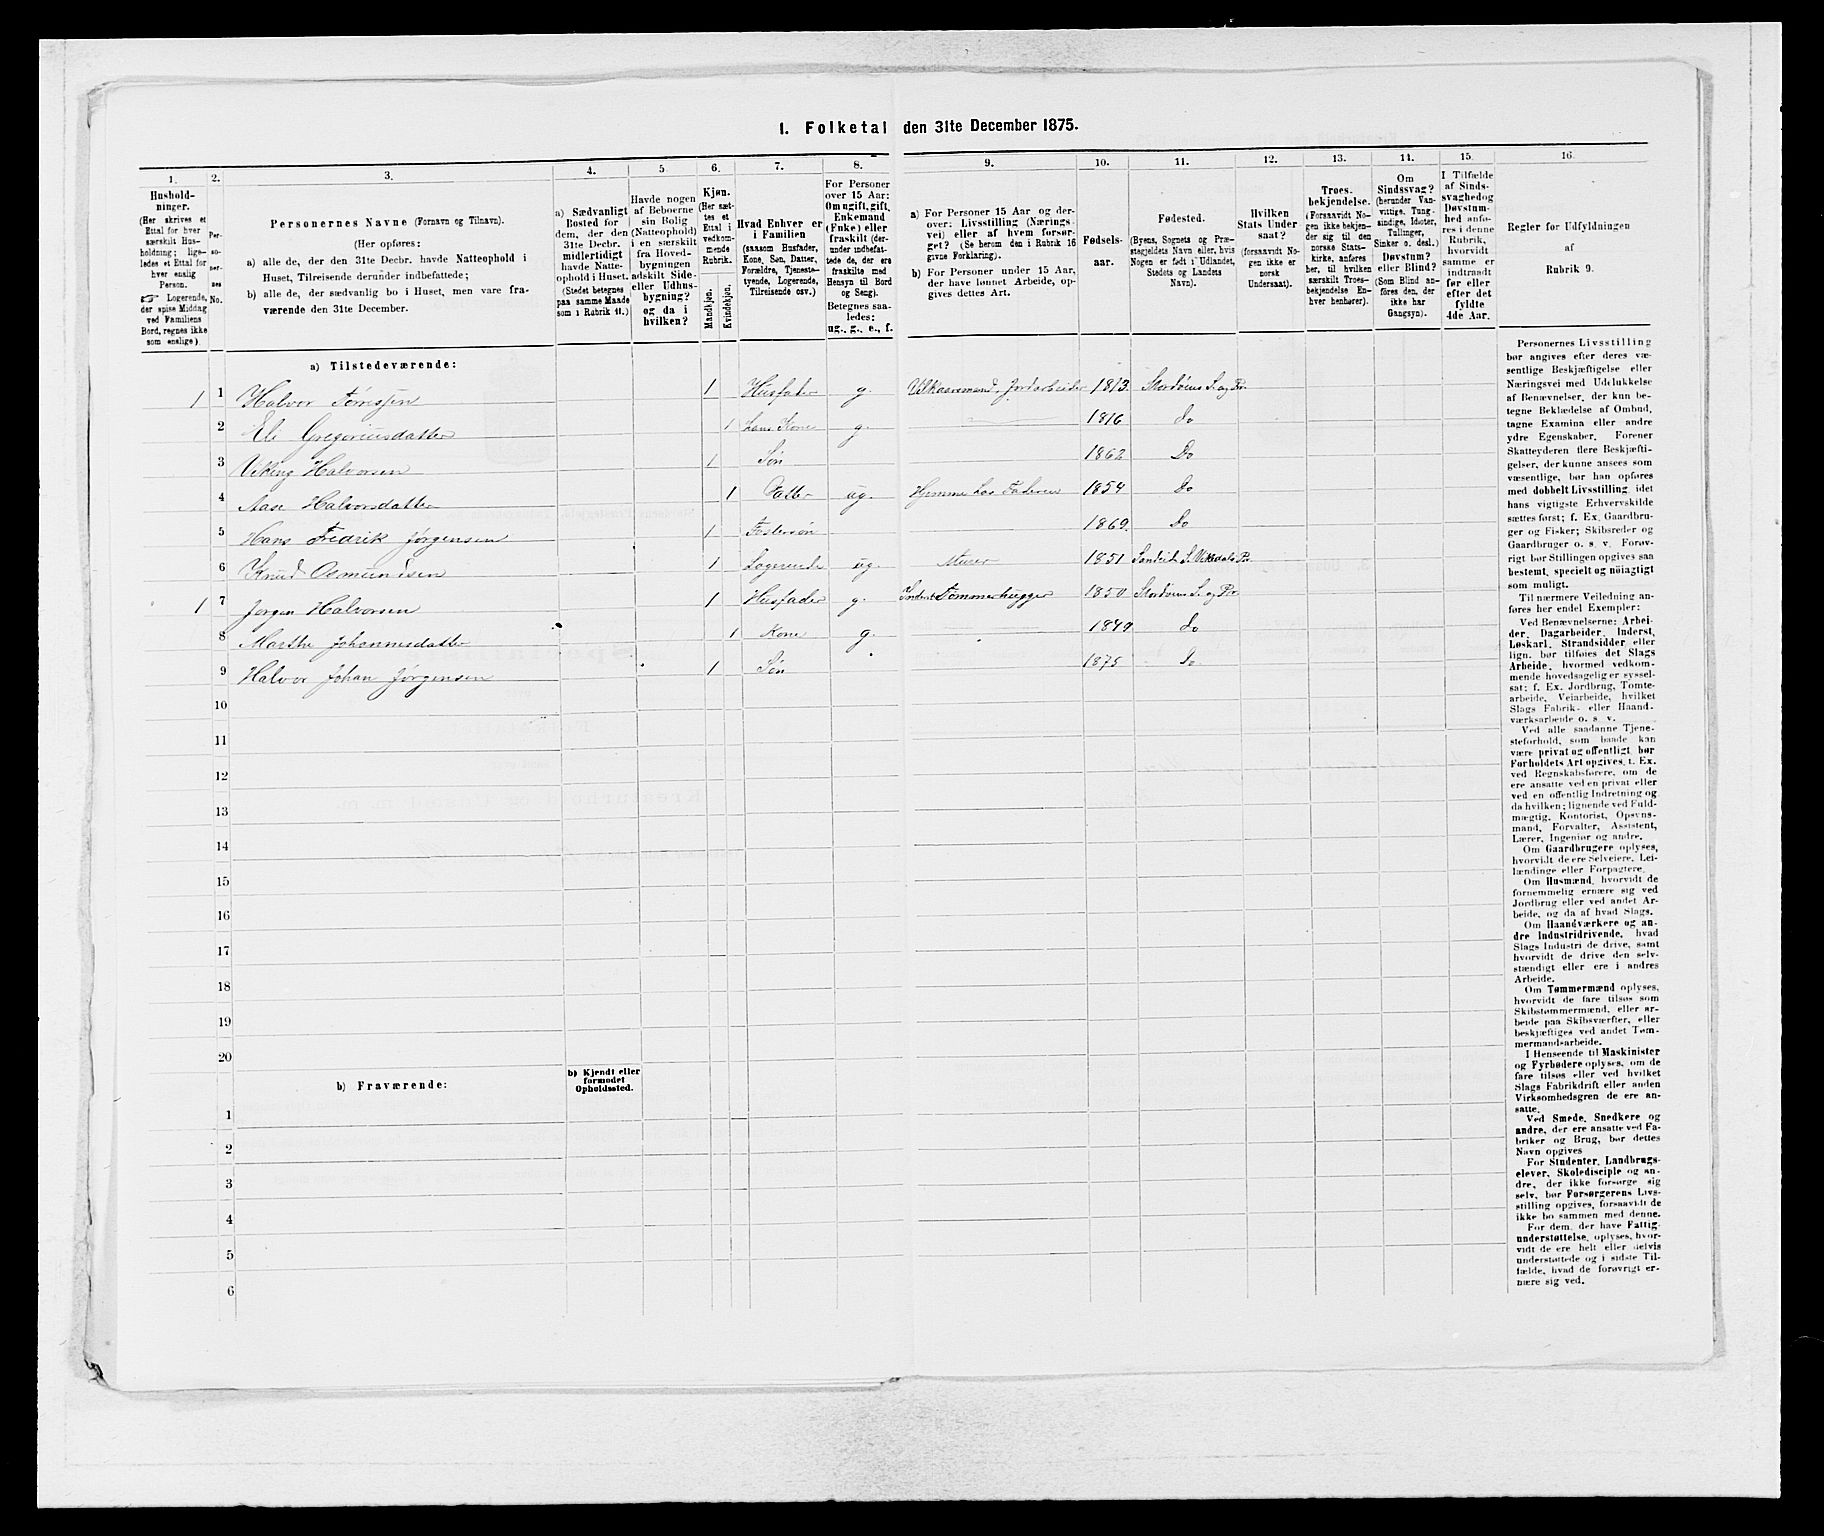 1. Folketal den 31te December 1875.
1. 2. 3. 4. 5. 6. 7. 8. 9. 10. 11. 12. 13. 14. 15. 16.
Hushold-
ninger.
(Her skrives et
Ettal for hver
særskilt Hus-
holdning; lige-
ledes et Ettal for
hver enslig
Person.
☞ Logerende,
der spise Middag
ved Familiens
Bord, regnes ikke
som enslige)
Per-
so-
ner-
nes
No.
Personernes Navne (Fornavn og Tilnavn).
(Her opføres:
a) alle de, der den 31te Decbr. havde Natteophold i
Huset, Tilreisende derunder indbefattede;
b) alle de, der sædvanlig bo i Huset, men vare fra-
værende den 31te December.
a) Sædvanligt
Bosted for
dem, der den
31te Decbr.
midlertidigt
havde Natte-
ophold i Huset.
(Stedet betegnes
paa samme Maade
som i Rubrik 11.)
Havde nogen
af Beboerne
sin Bolig
(Natteophold)
i en særskilt
fra Hoved-
bygningen
adskilt Side-
eller Udhus-
bygning?
og da i
hvilken?
Kjøn.
(Her sæt-
tes et
Ettal i
vedkom-
mende
Rubrik.
Mandkjøn.
Kvindekjøn.
Hvad Enhver er
i Familien
(saasom Husfader,
Kone, Søn, Datter,
Forældre, Tjeneste-
tyende, Logerende,
Tilreisende osv.)
For Personer
over 15 Aar:
Om ugift, gift,
Enkemand
(Enke) eller
fraskilt (der-
under indbefat-
tede de, der ere
fraskilte med
Hensyn til Bord
og Seng).
Betegnes saa-
ledes:
ug., g., e., f.
a) For Personer 15 Aar og der-
over: Livsstilling (Nærings-
vei) eller af hvem forsør-
get? (Se herom den i Rubrik 16
givne Forklaring).
b) For Personer under 15 Aar,
der have lønnet Arbeide, op-
gives dettes Art.
Fødsels-
aar.
Fødested.
(Byens, Sognets og Præ-
stegjeldets Navn eller, hvis
Nogen er født i Udlandet,
Stedets og Landets
Navn).
Hvilken
Stats Under-
saat?
(forsaavidt No-
gen ikke er
norsk
Undersaat).
Troes-
bekjendelse.
(Forsaavidt No-
gen ikke bekjen-
der sig til den
norske Stats-
kirke, anføres
her, til hvilken
særskilt Troes-
bekjendelse En-
hver henhører).
Om
Sindssvag?
(herunder Van-
vittige, Tung-
sindige, Idioter,
Tullinger,
Sinker o. desl.)
Døvstum?
eller Blind?
(Som Blind an-
føres den, der
ikke har
Gangsyn).
I Tilfælde
af Sinds-
svaghed og
Døvstum-
hed anfø-
res i denne
Rubrik,
hvorvidt
samme er
indtraadt
før eller
efter det
fyldte
4de Aar.
Regler for Udfyldningen
af
Rubrik 9.
a) Tilstedeværende:
1 1 Halvor Tørresen 1 Husfader g. Vilkaarsmand, Jordarbeider 1813. Stordøens S. og Pr.
2 Eli Gregoriusdatter 1 hans Kone g. 1816 do
3 Viking Halvorsen 1 Søn 1862 Do
4 Aase Halvorsdatter 1 Datter ug. Hjemme hos Faderen 1854 do
5 Hans Fredrik Jørgensen 1 Fostersøn 1869. Do
6 Knud Osmundsen 1 Logerende ug. Murer 1851 S. Vikedals Pr.
1 7 Jørgen Halvorsen 1 Husfader g. Inderst Tømmerhugger 1850 Stordøens S. og Pr
8 Marthe Johannesdatter 1 Kone g. 1849 do
9 Halvor Johan Jørgensen 1 Søn 1875 do
10
11
12
13
14
15
16
17
18
19
20
b) Fraværende:
b) Kjendt eller
formodet
Opholdssted.
1
2
3
4
5
6
Personernes Livsstilling
bør angives efter deres væ-
sentlige Beskjæftigelse eller
Næringsvei med Udelukkelse
af Benævnelser, der kun be-
tegne Beklædelse af Ombud,
tagne Examina eller andre
ydre Egenskaber. Forener
Skatteyderen flere Beskjæfti-
gelser, der kunne ansees som
væsentlige, bør han opføres
med dobbelt Livsstilling, idet
hans vigtigste Erhvervskilde
sættes først; f. Ex. Gaardbru-
ger og Fisker; Skibsreder og
Gaardbruger o. s. v. Forøv-
rigt bør Stillingen opgives saa
bestemt, specielt og nøiagtigt
som muligt.
Til nærmere Veiledning an-
føres her endel Exempler:
Ved Benævnelserne: Arbei-
der, Dagarbeider, Inderst,
Løskarl, Strandsidder eller
lign. bør tilføies det Slags
Arbeide, hvormed vedkom-
mende hovedsagelig er syssel-
sat; f. Ex. Jordbrug, Tomte-
arbeide, Veiarbeide, hvilket
Slags Fabrik- eller Haand-
værksarbeide o. s. v.
Ved alle saadanne Tjene-
steforhold, som baade kan
være privat og offentligt, bør
Forholdets Art opgives, t. Ex.
ved Regnskabsførere, om de
ere ansatte ved en privat eller
ved en offentlig Indretning og
da hvilken; lignende ved Fuld-
mægtig, Kontorist, Opsyns-
mand, Forvalter, Assistent,
Lærer, Ingeniør og andre.
Om Gaardbrugere oplyses,
hvorvidt de ere Selveiere, Lei-
lændinge eller Forpagtere.
Om Husmænd, hvorvidt de
fornemmelig ernære sig ved
Jordbrug eller ved andet Ar-
beide, og da af hvad Slags.
Om Haandværkere og an-
dre Industridrivende, hvad
Slags Industri de drive, samt
hvorvidt de drive den selv-
stændigt eller ere i andres
Arbeide.
Om Tømmermænd oplyses,
hvorvidt de fare tilsøs som
Skibstømmermænd, eller ar-
beide paa Skibsværfter, eller
beskjæftiges ved andet Tøm-
mermandsarbeide.
I Henseende til Maskinister
og Fyrbødere oplyses, om de
fare tilsøs eller ved hvilket
Slags Fabrikdrift eller anden
Virksomhedsgren de ere an-
satte.
Ved Smede, Snedkere og
andre, der ere ansatte ved Fa-
briker og Brug, bør dettes
Navn opgives
For Studenter, Landbrugs-
elever, Skoledisciple og an-
dre, der ikke forsørge sig
selv, bør Forsørgerens Livs-
stilling opgives, forsaavidt de
ikke bo sammen med denne.
For dem, der have Fattig-
understøttelse, oplyses, hvor-
vidt de ere helt eller delvis
understøttede og i sidste Til-
fælde, hvad de forøvrigt er-
nære sig ved.